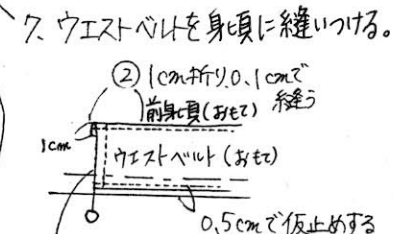 7. ウエストベルトを身頃に縫いつける。
② 1cm折り、0.1cmで
縫う
前身頃(おもて)
1cm
ウエストベルト(おもて)
0.5cmで仮止めする